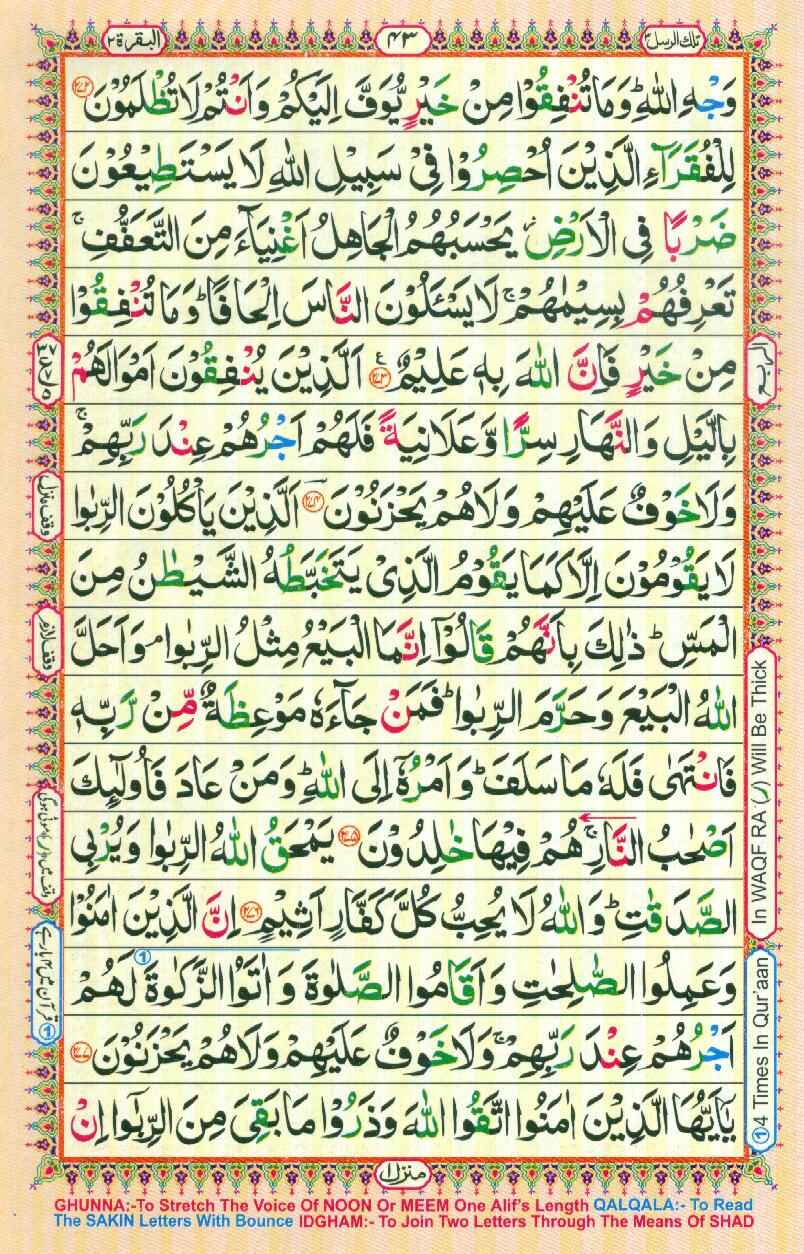 تلك الرسل ٣
٤٣
البقرة ٢
وَجْهِ اللّٰهِ ؕ وَمَا تُنْفِقُوْا مِنْ خَيْرٍ يُّوَفَّ اِلَيْكُمْ وَاَنْتُمْ لَا تُظْلَمُوْنَ ﴿۲۷۲﴾
لِلْفُقَرَآءِ الَّذِيْنَ اُحْصِرُوْا فِىْ سَبِيْلِ اللّٰهِ لَا يَسْتَطِيْعُوْنَ
ضَرْبًا فِى الْاَرْضِ ز يَحْسَبُهُمُ الْجَاهِلُ اَغْنِيَآءَ مِنَ التَّعَفُّفِ ۚ
تَعْرِفُهُمْ بِسِيْمٰهُمْ ۚ لَا يَسْئَلُوْنَ النَّاسَ اِلْحَافًا ؕ وَمَا تُنْفِقُوْا
مِنْ خَيْرٍ فَاِنَّ اللّٰهَ بِهٖ عَلِيْمٌ ﴿۲۷۳﴾ ع اَلَّذِيْنَ يُنْفِقُوْنَ اَمْوَالَهُمْ
بِالَّيْلِ وَالنَّهَارِ سِرًّا وَّعَلَانِيَةً فَلَهُمْ اَجْرُهُمْ عِنْدَ رَبِّهِمْ ۚ
وَلَا خَوْفٌ عَلَيْهِمْ وَلَا هُمْ يَحْزَنُوْنَ ﴿۲۷۴﴾ اَلَّذِيْنَ يَاْكُلُوْنَ الرِّبٰوا
لَا يَقُوْمُوْنَ اِلَّا كَمَا يَقُوْمُ الَّذِىْ يَتَخَبَّطُهُ الشَّيْطٰنُ مِنَ
الْمَسِّ ؕ ذٰلِكَ بِاَنَّهُمْ قَالُوْۤا اِنَّمَا الْبَيْعُ مِثْلُ الرِّبٰوا ۘ وَاَحَلَّ
اللّٰهُ الْبَيْعَ وَحَرَّمَ الرِّبٰوا ؕ فَمَنْ جَآءَهٗ مَوْعِظَةٌ مِّنْ رَّبِّهٖ
فَانْتَهٰى فَلَهٗ مَا سَلَفَ ؕ وَاَمْرُهٗۤ اِلَى اللّٰهِ ؕ وَمَنْ عَادَ فَاُولٰٓئِكَ
اَصْحٰبُ النَّارِ ۚ هُمْ فِيْهَا خٰلِدُوْنَ ﴿۲۷۵﴾ يَمْحَقُ اللّٰهُ الرِّبٰوا وَيُرْبِى
الصَّدَقٰتِ ؕ وَاللّٰهُ لَا يُحِبُّ كُلَّ كَفَّارٍ اَثِيْمٍ ﴿۲۷۶﴾ اِنَّ الَّذِيْنَ اٰمَنُوْا
وَعَمِلُوا الصّٰلِحٰتِ وَاَقَامُوا الصَّلٰوةَ وَاٰتَوُا الزَّكٰوةَ ① لَهُمْ
اَجْرُهُمْ عِنْدَ رَبِّهِمْ ۚ وَلَا خَوْفٌ عَلَيْهِمْ وَلَا هُمْ يَحْزَنُوْنَ ﴿۲۷۷﴾
يٰۤاَيُّهَا الَّذِيْنَ اٰمَنُوا اتَّقُوا اللّٰهَ وَذَرُوْا مَا بَقِىَ مِنَ الرِّبٰۤوا اِنْ
الربع
In WAQF RA (ر) Will Be Thick
①4 Times In Qur'aan
وقف منزل
وقف لازم
وقف میں را، موٹی ہوگی
① قرآن میں ۴ بار ہے
منزل ۱
GHUNNA:-To Stretch The Voice Of NOON Or MEEM One Alif's Length QALQALA:- To Read
The SAKIN Letters With Bounce IDGHAM:- To Join Two Letters Through The Means Of SHAD